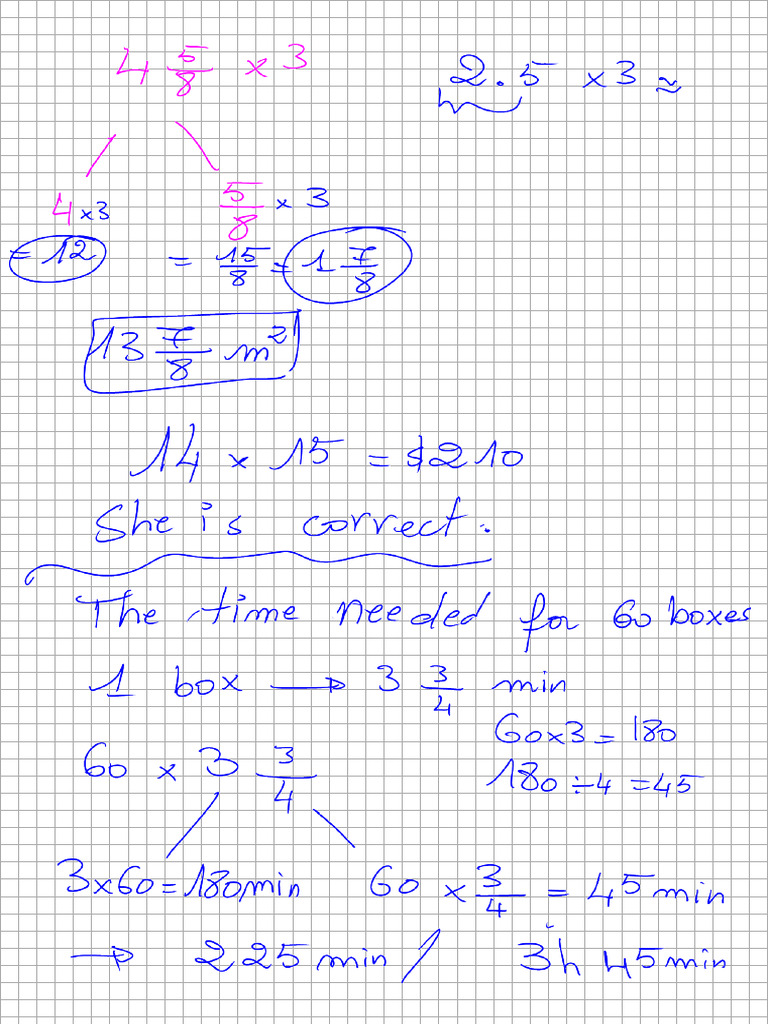 4 5/8 × 3
2.5 × 3 ≈
4 × 3
5/8 × 3
= 12
= 15/8 = 1 7/8
13 7/8 m²
14 × 15 = $210
She is correct.
The time needed for 60 boxes
1 box → 3 3/4 min
60×3 = 180
60 × 3 3/4
180 ÷ 4 = 45
3×60 = 180min
60 × 3/4 = 45 min
→ 225 min / 3h 45min